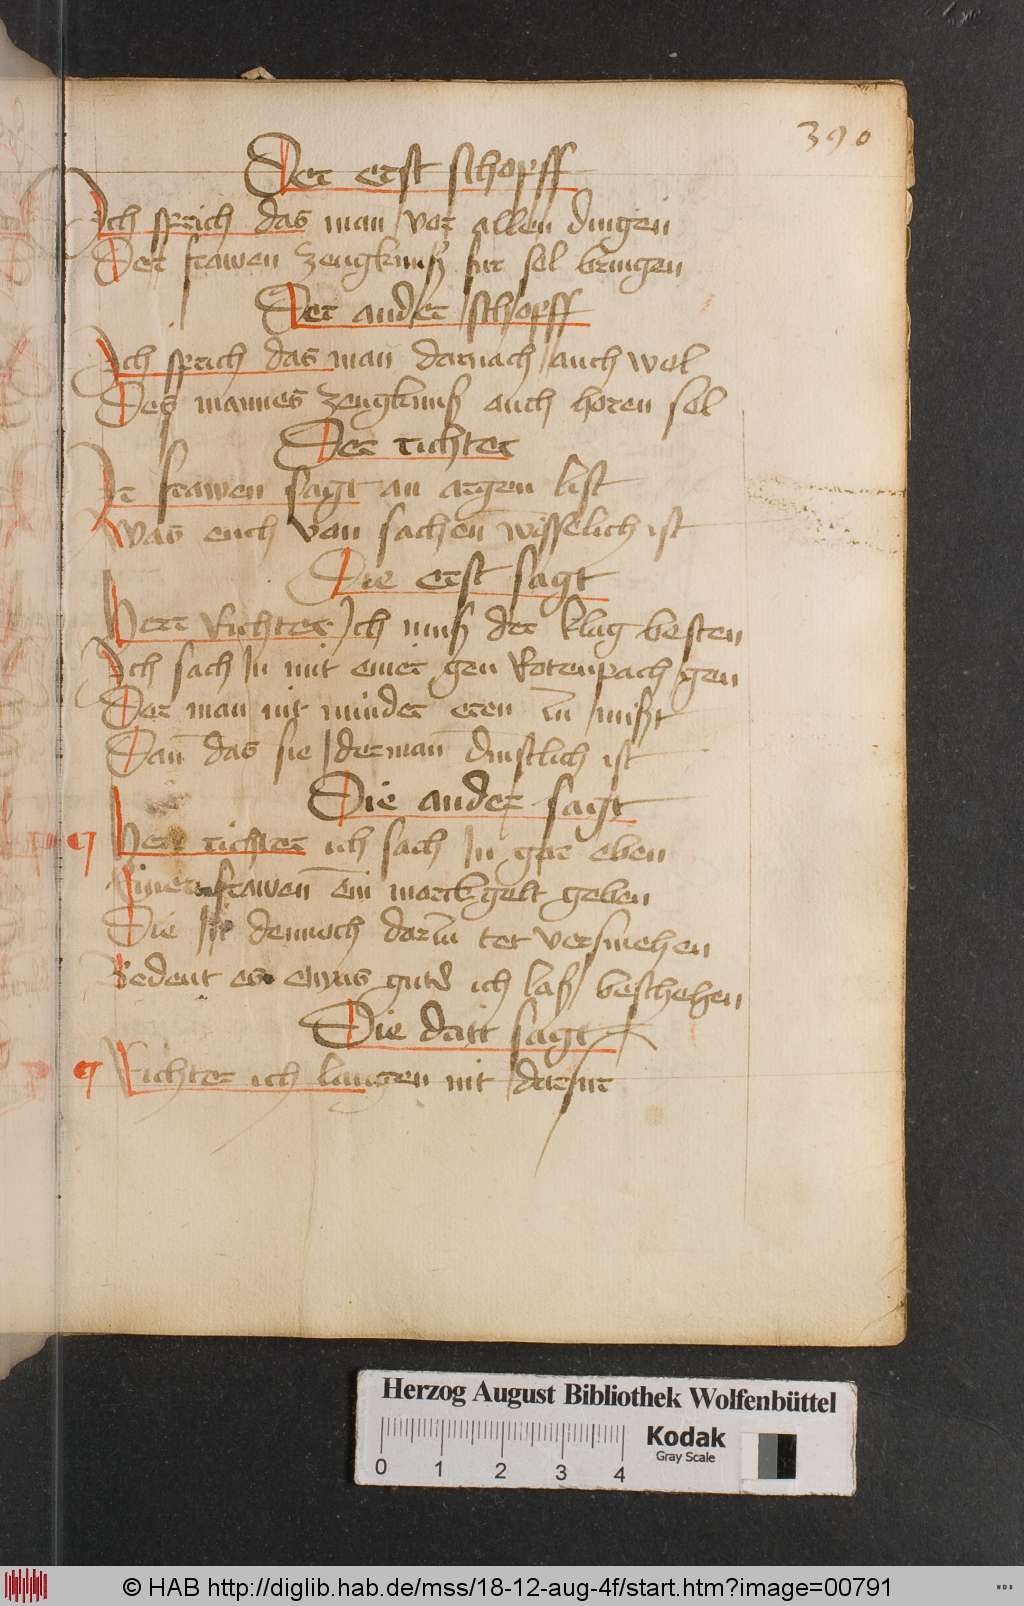 390
Der erst schopff
Ich sprich das man vor allen dingen
Der frawen zeugknuß fur sol bringen
Der ander schopff
Ich sprich das man darnach auch wol
Des mannes zeugknuß auch horen sol
Der richter
Ir frawen sagt an argen list
Was euch von sachen wisselich ist
Die erst sagt
Herr Richter Ich muß der klag besten
Ich sach In mit einer gen Rotenpach gen
Der man nit minder eren im mißt
Dan̄ das sie Iderman̄ dinstlich ist
Die ander sagt
Herr richter ich sach In gar eben
Einer frawen̄ ein marckgelt geben
Die In dennoch darin̄ ter versmehen
Bedeut es eyns gutz ich laß beschehen
Die datt sagt
Richter ich laugen nit darfur
Herzog August Bibliothek Wolfenbüttel
Kodak
Gray Scale
0 1 2 3 4
© HAB http://diglib.hab.de/mss/18-12-aug-4f/start.htm?image=00791
WDB